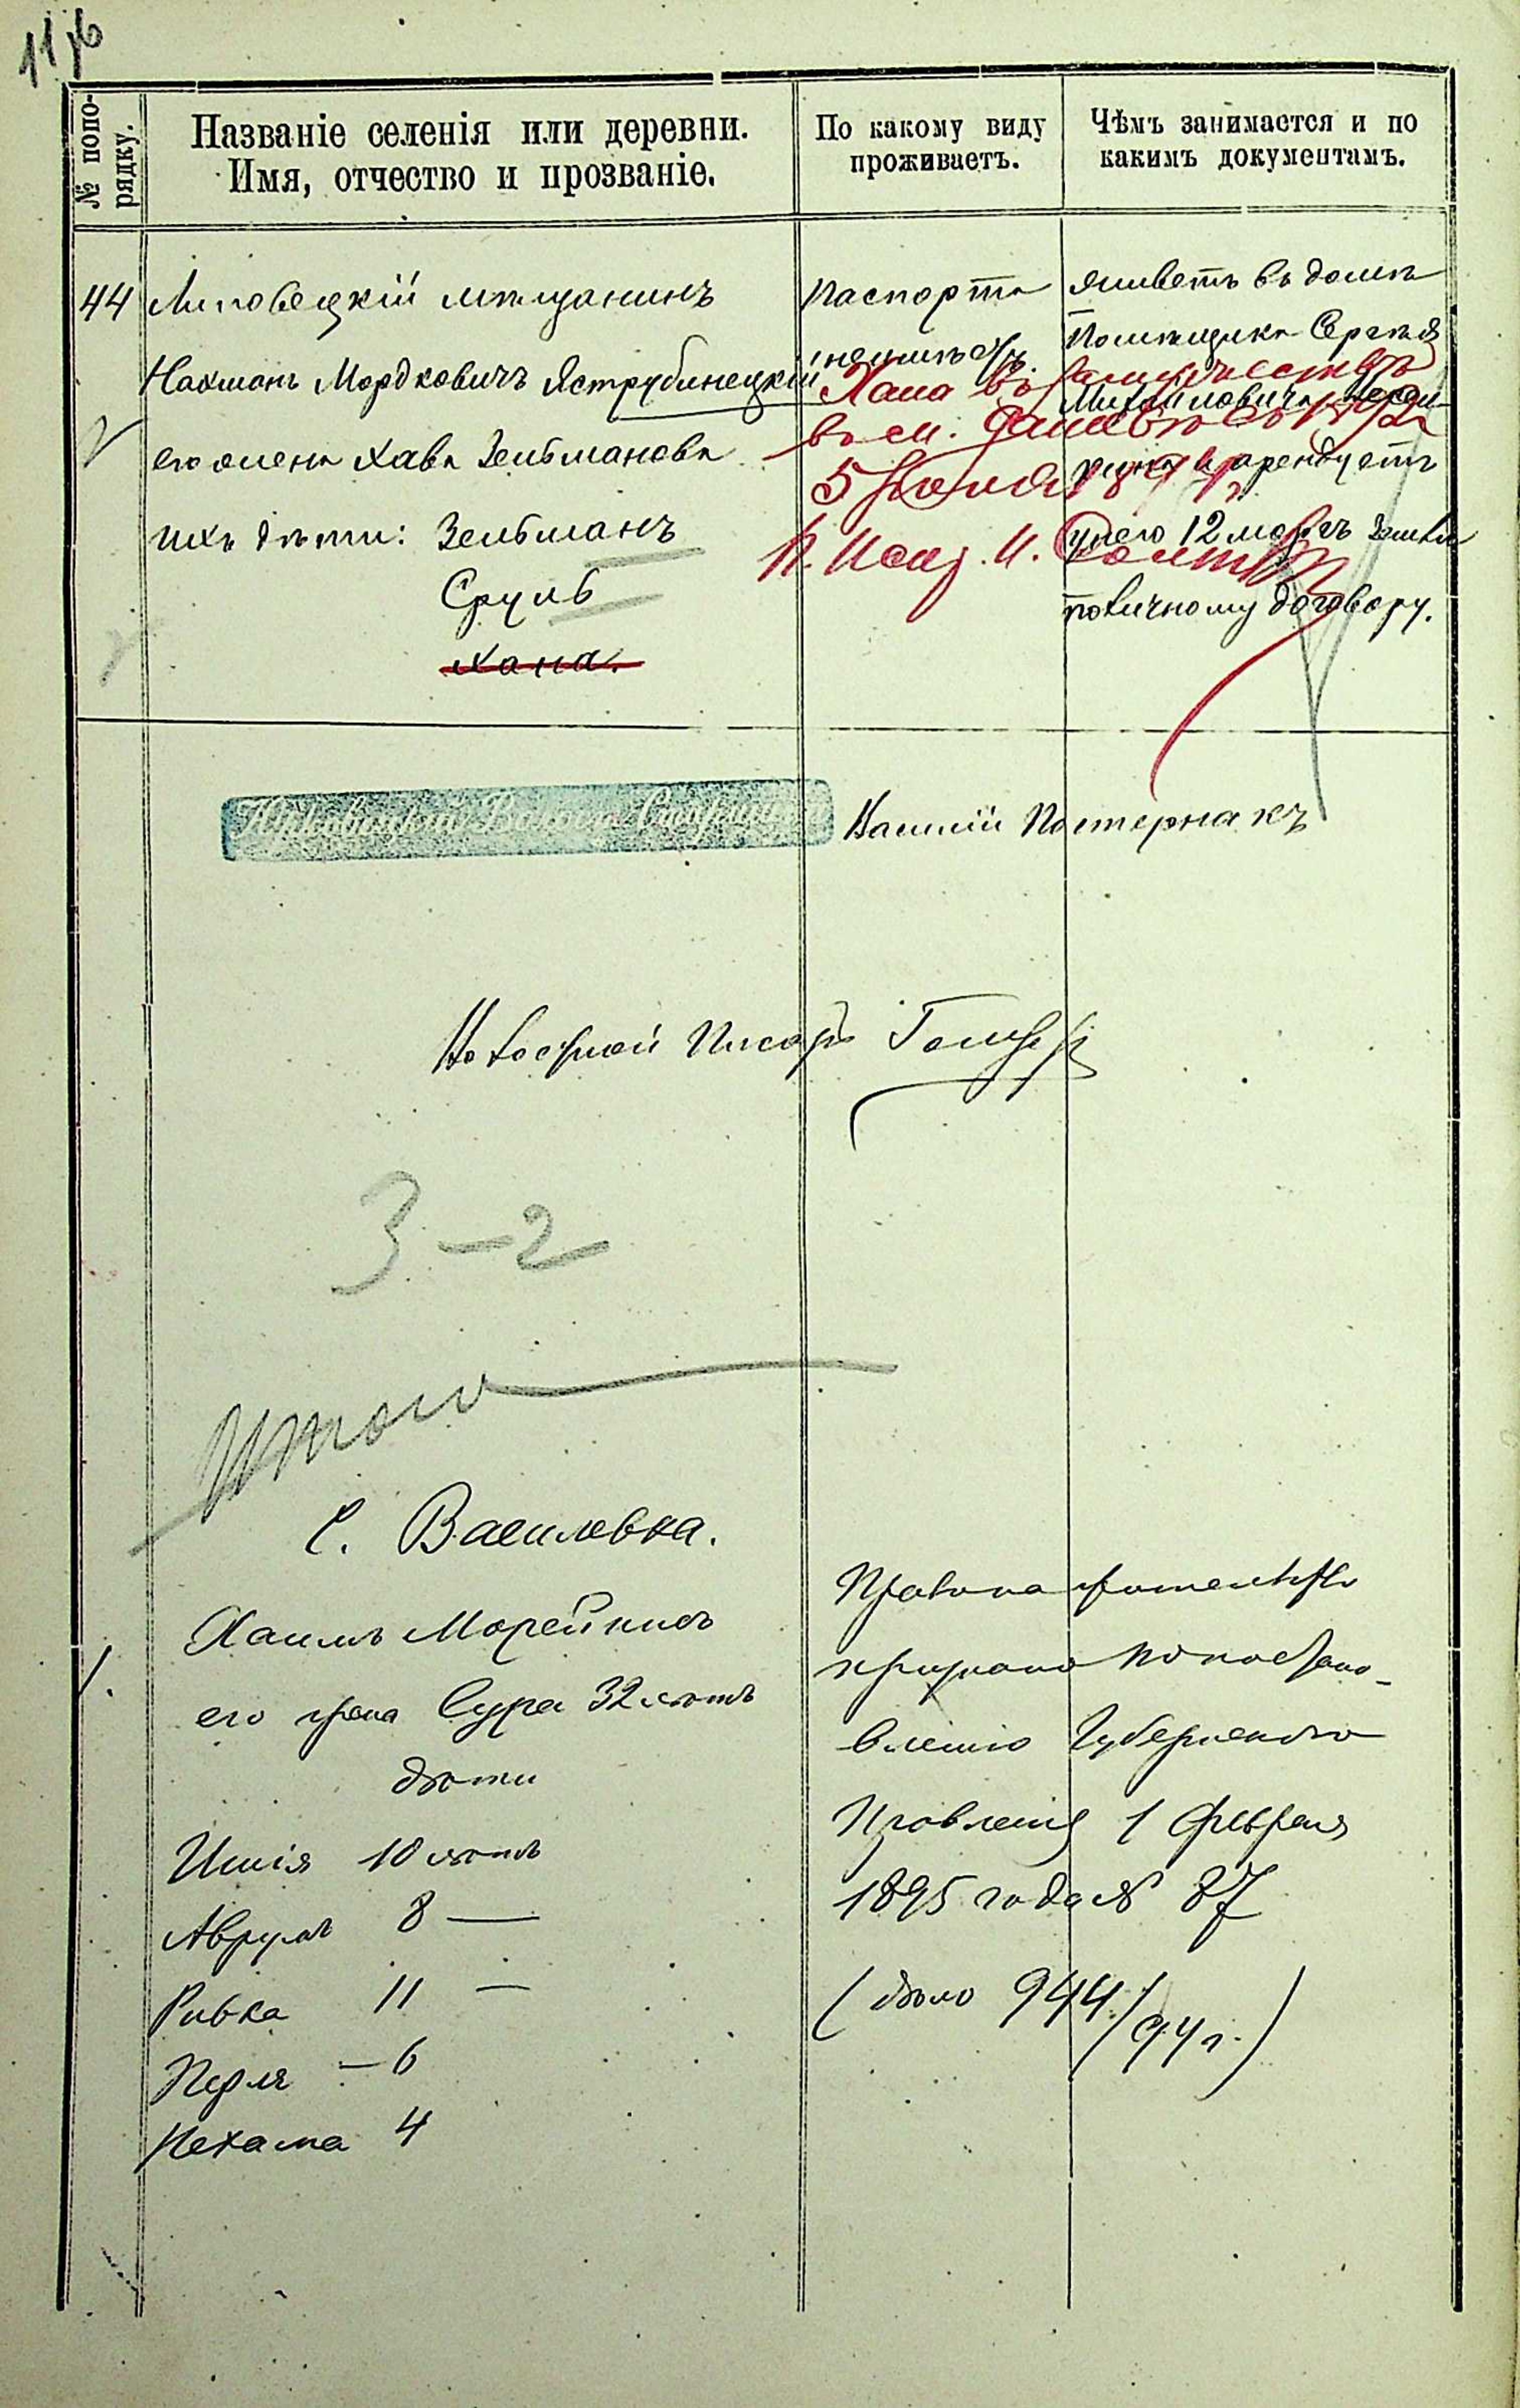 № попо-
рядку.
Названіе селенія или деревни.
Имя, отчество и прозваніе.
По какому виду
проживаетъ.
Чѣмъ занимается и по
какимъ документамъ.
44
Липовецкій мѣщанинъ
Нахманъ Мордковичъ Яструбинецкій
его жена Хава Зельманова
ихъ дѣти: Зельманъ
Сруль
Хана.
Паспорта
неимѣетъ
живетъ въ домѣ
Помѣщика Сергѣя
Михайловича
и арендуетъ
у него 12 морговъ земли
по личному договору.
Хана въ замужествѣ
въ м.
5
Василій Пастернакъ
Волостной Писарь
3-2
Итого
С. Василевка.
1.
Хаимъ Морейнисъ
его жена Сура 32 лѣтъ
дѣти
Шлія 10 лѣтъ
Аврумъ 8 —
Ривка 11 —
Перля — 6
Нехама 4
Права жительства
признано по постано-
вленію Губернскаго
Правленія 1 Февраля
1895 года № 87
(дѣло 944/94 г.)